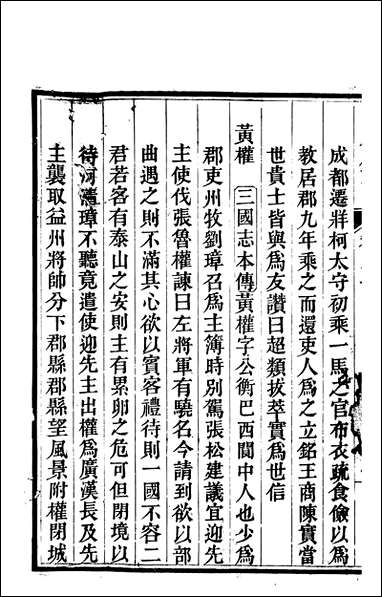 成都遷牂柯太守初乘一馬之官布衣蔬食儉以爲
教居郡九年乘之而還吏人爲之立銘王商陳實當
世貴士皆與爲友讚曰超類拔萃實爲世信
黃權 三國志本傳黃權字公衡巴西閬中人也少爲
郡吏州牧劉璋召爲主簿時別駕張松建議宜迎先
主使伐張魯權諫曰左將軍有驍名今請到欲以部
曲遇之則不滿其心欲以賓客禮待則一國不容二
君若客有泰山之安則主有累卵之危可但閉境以
待河清璋不聽竟遣使迎先主出權爲廣漢長及先
主襲取益州將帥分下郡縣郡縣望風景附權閉城